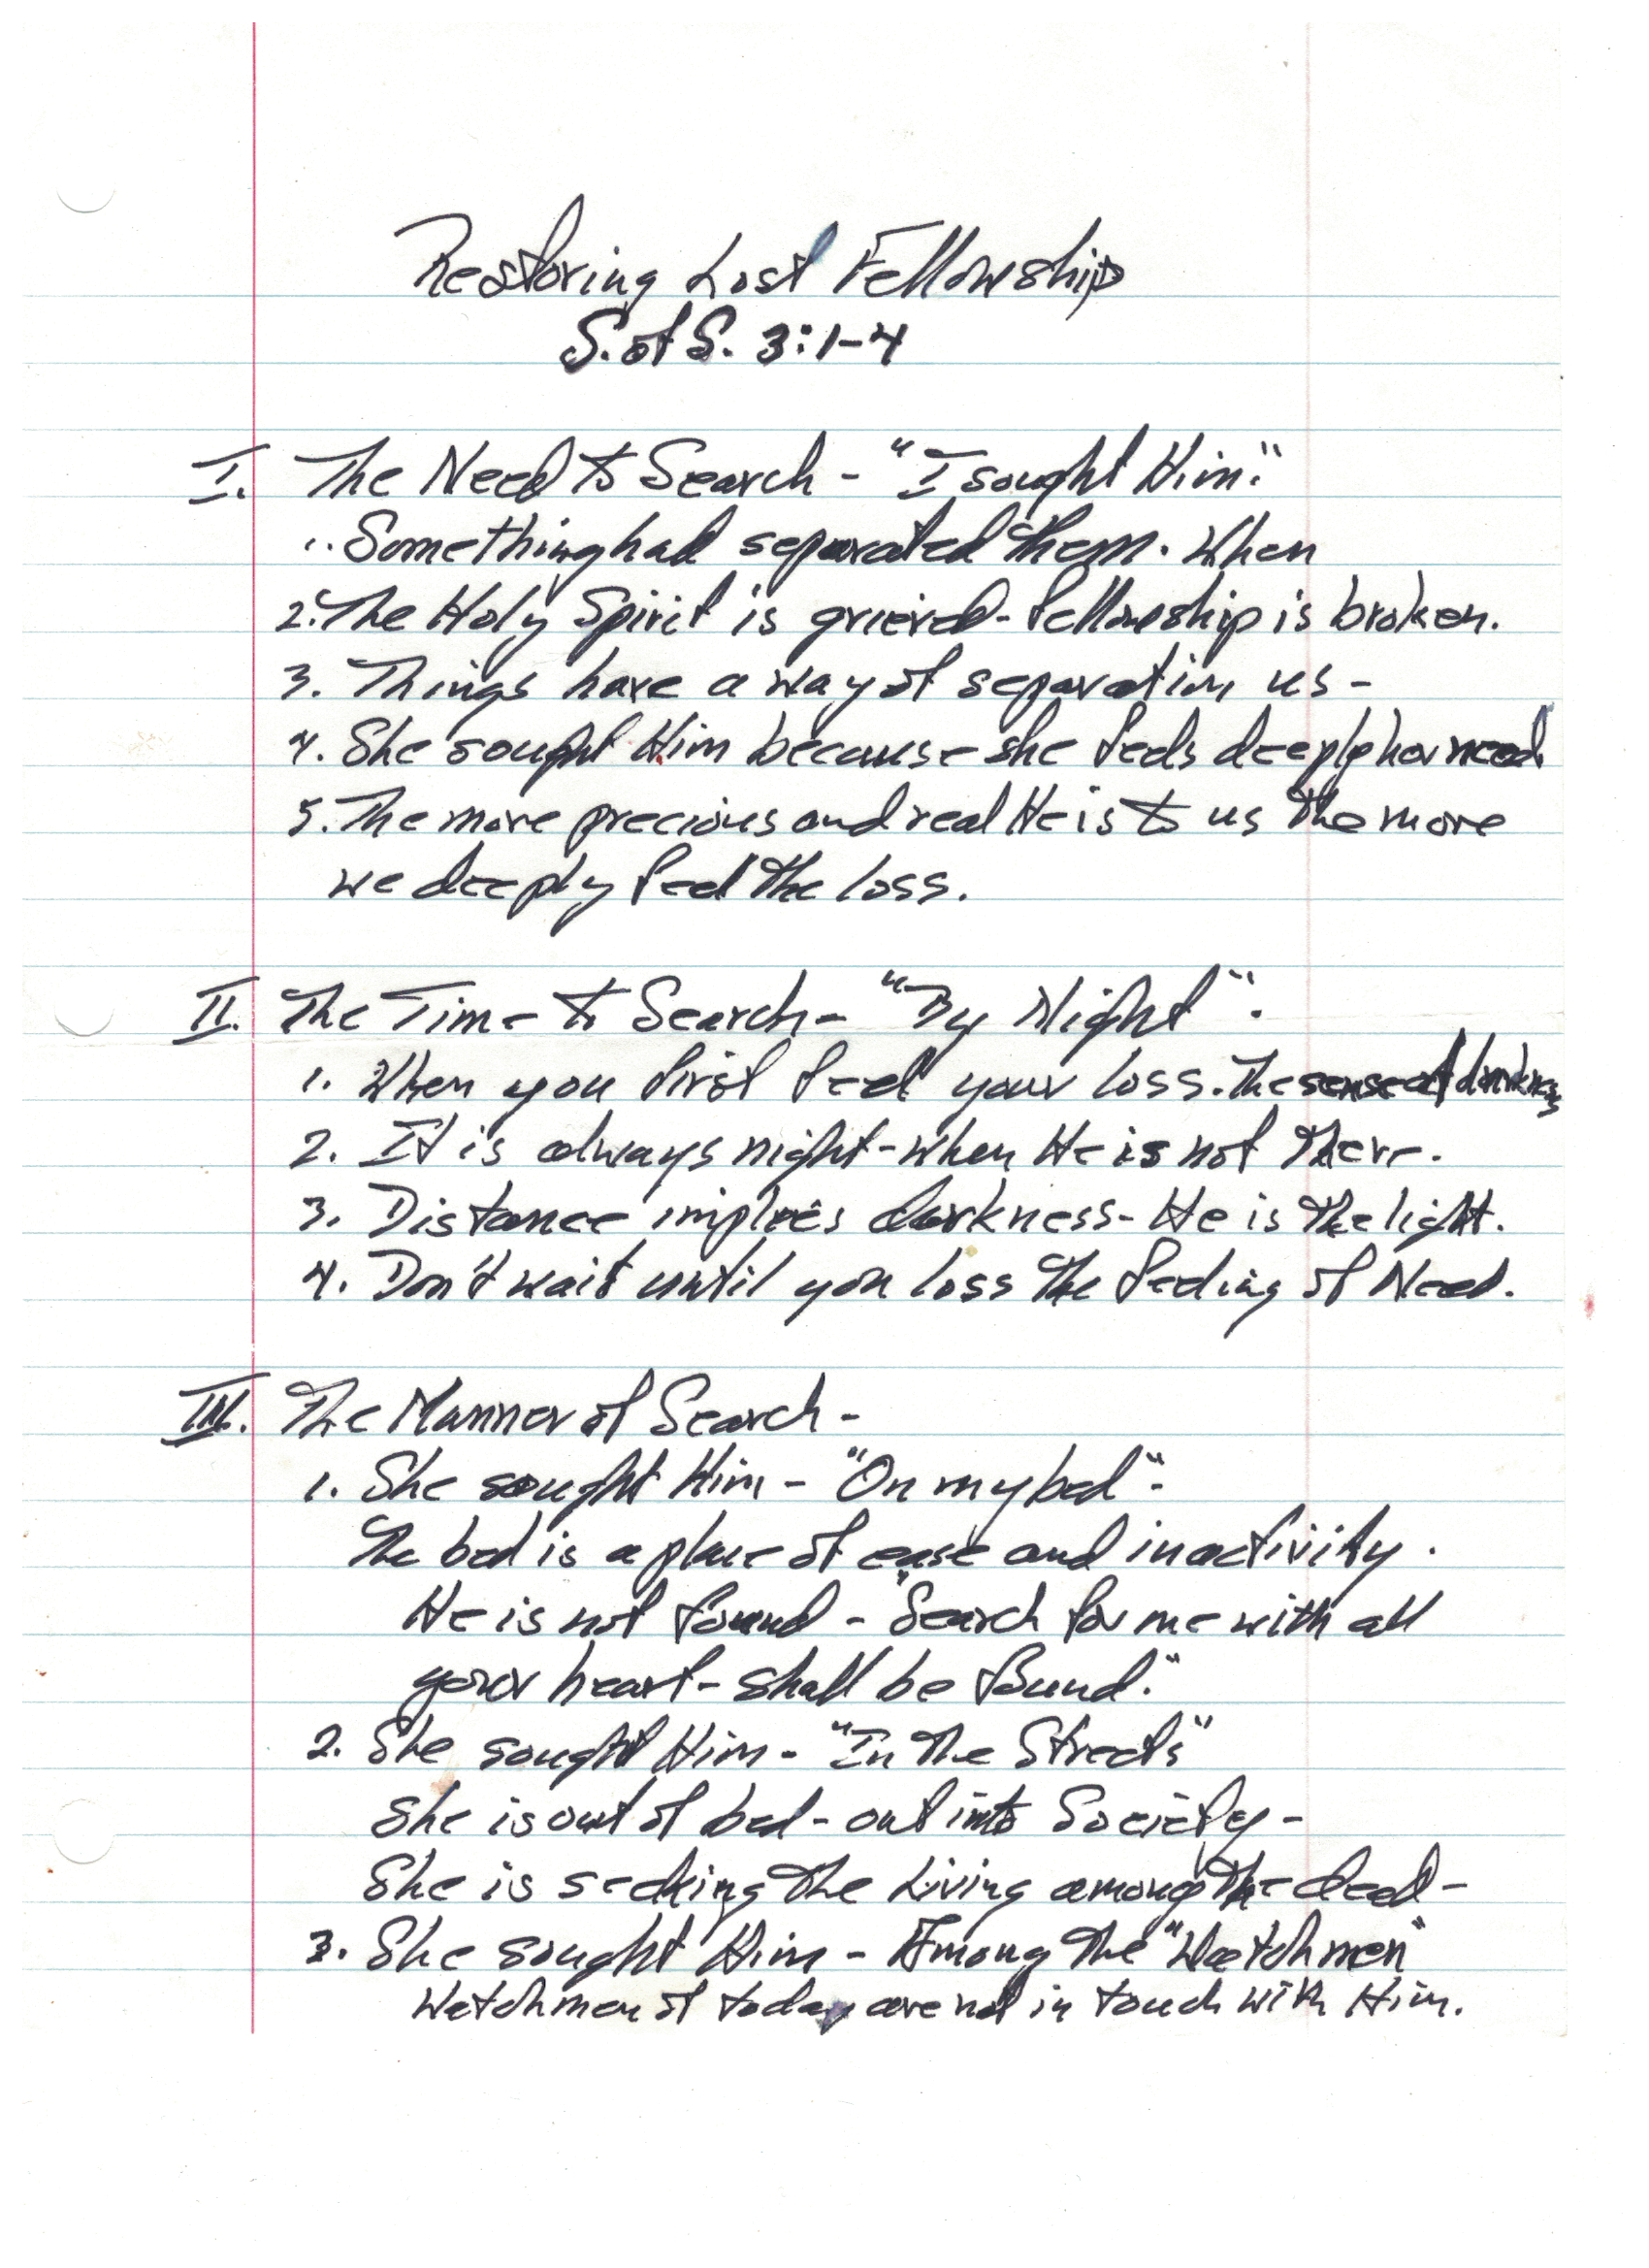 Restoring Lost Fellowship
S. of S. 3:1-4
I. The Need to Search - "I sought Him."
1. Something had separated them. When
2. The Holy Spirit is grieved - fellowship is broken.
3. Things have a way of separation us -
4. She sought Him because she feels deeply her need.
5. The more precious and real He is to us the more
we deeply feel the loss.
II. The Time to Search - "By Night".
1. When you first feel your loss. The sense of darkness
2. It is always night - when He is not there.
3. Distance implies darkness - He is the light.
4. Don't wait until you loss the feeling of Need.
III. The Manner of Search -
1. She sought Him - "On my bed".
The bed is a place of ease and inactivity.
He is not found - "Search for me with all
your heart - shall be found."
2. She sought Him - "In the Streets"
She is out of bed - out into Society -
She is seeking the Living among the dead -
3. She sought Him - Among the "Watchmen"
Watchmen of today are not in touch with Him.